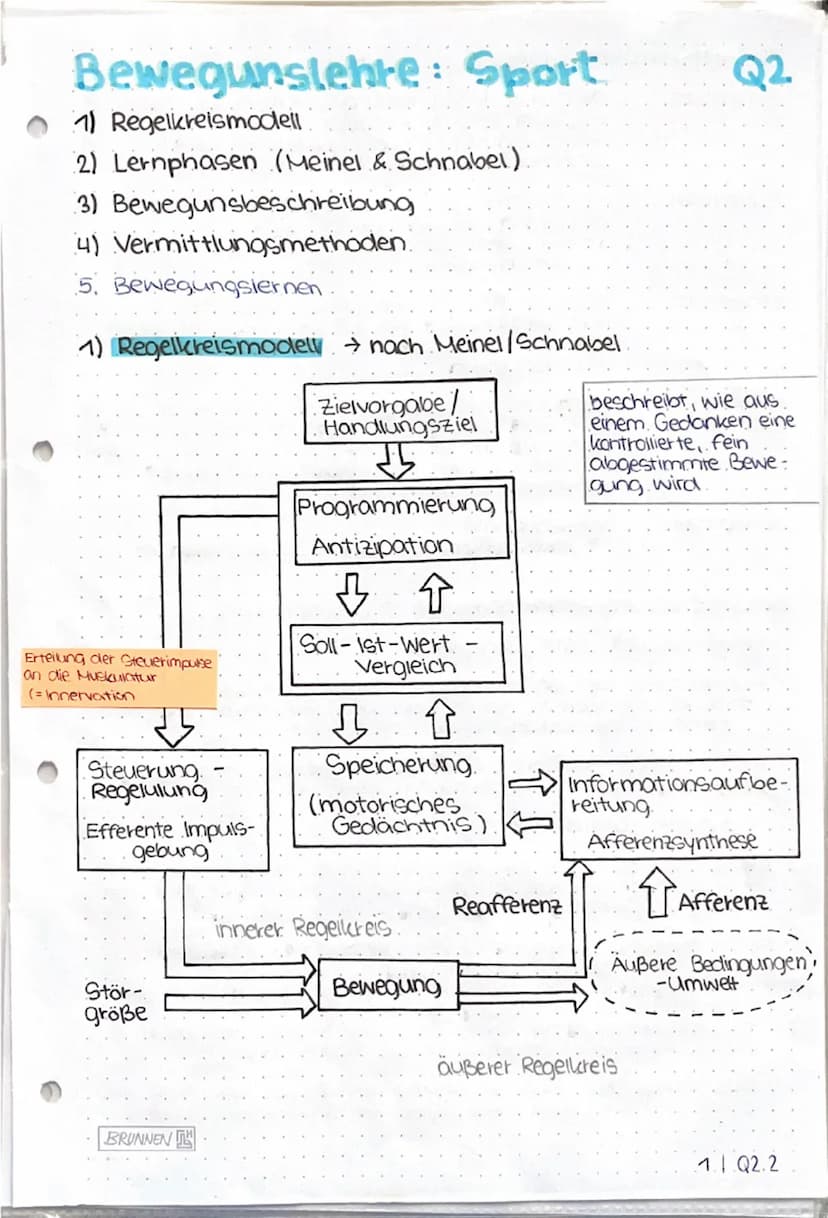 Bewegunslehre: Sport Q2
1) Regelkreismodell
2) Lernphasen (Meinel & Schnabel)
3) Bewegunsbeschreibung
4) Vermittlungsmethoden
5. Bewegungslernen
1) Regelkreismodell → nach Meinel/Schnabel
Zielvorgabe/
Handlungsziel
beschreibt, wie aus
einem Gedanken eine
kontrollierte, fein
abgestimmte Bewe-
gung wird
Programmierung
Antizipation
Soll-Ist-Wert-
Vergleich
Erteilung der Steuerimpulse
an die Muskulatur
(= Innervation
Steuerung -
Regelulung
Efferente Impuls-
gebung
Speicherung
(motorisches
Gedächtnis)
Informationsaufbe-
reitung
Afferenzsynthese
Reafferenz
Afferenz
innerer Regelkreis
Äußere Bedingungen
-Umwelt
Bewegung
Stör-
größe
äußerer Regelkreis
BRUNNEN
1 | Q2.2